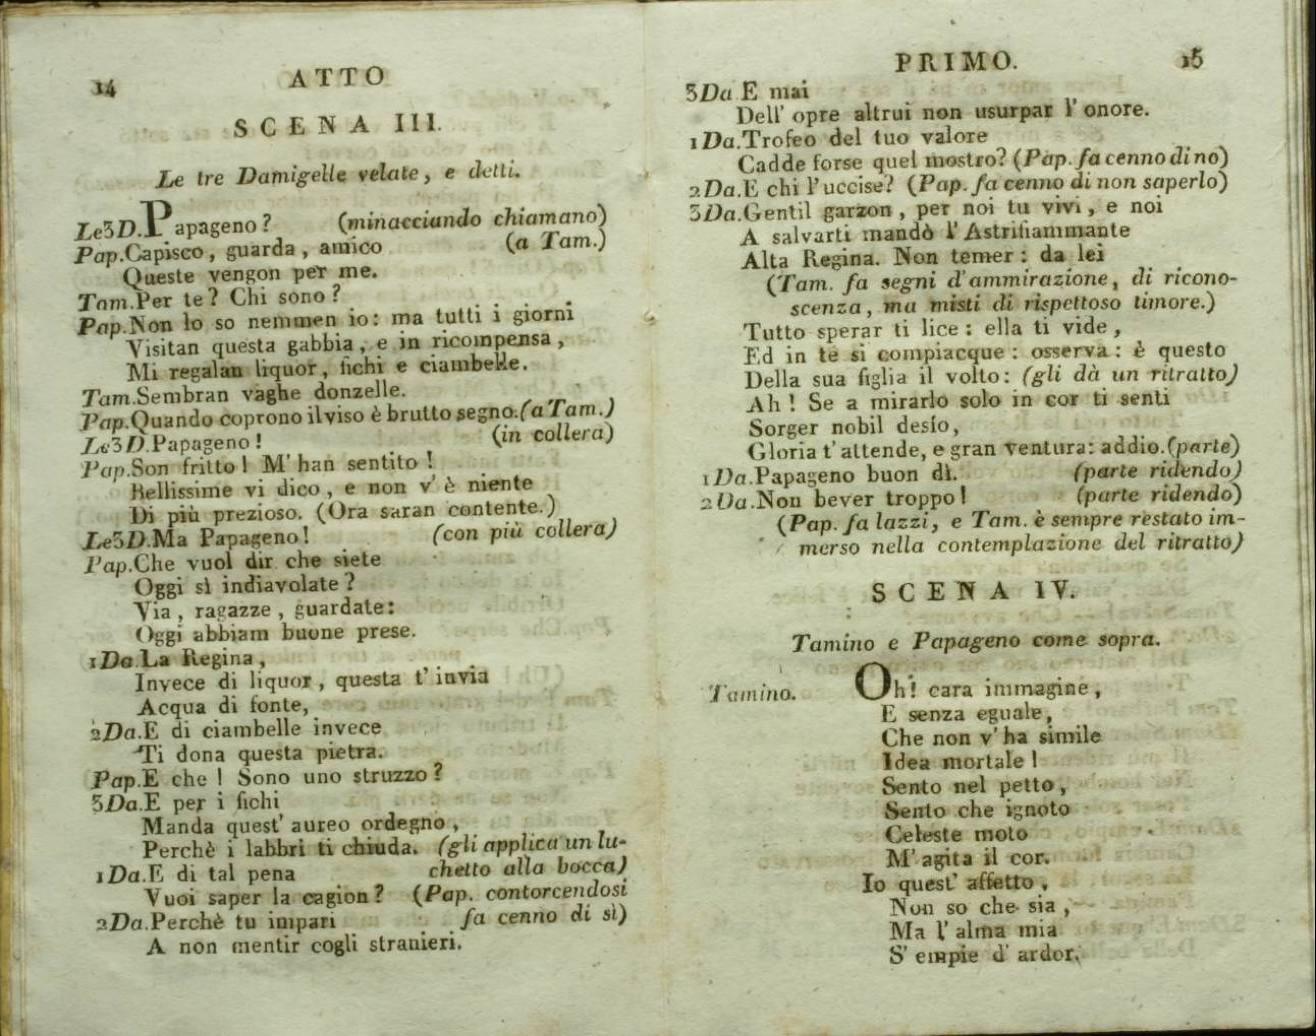 14
ATTO
SCENA III.
Le tre Damigelle velate, e detti.
Le3D.Papageno? (minacciando chiamano)
Pap.Capisco, guarda, amico (a Tam.)
Queste vengon per me.
Tam.Per te? Chi sono?
Pap.Non lo so nemmen io: ma tutti i giorni
Visitan questa gabbia, e in ricompensa,
Mi regalan liquor, fichi e ciambelle.
Tam.Sembran vaghe donzelle.
Pap.Quando coprono il viso è brutto segno.(a Tam.)
Le3D.Papageno! (in collera)
Pap.Son fritto! M'han sentito!
Bellissime vi dico, e non v'è niente
Di più prezioso. (Ora saran contente.)
Le3D.Ma Papageno! (con più collera)
Pap.Che vuol dir che siete
Oggi sì indiavolate?
Via, ragazze, guardate:
Oggi abbiam buone prese.
1Da.La Regina,
Invece di liquor, questa t'invia
Acqua di fonte,
2Da.E di ciambelle invece
Ti dona questa pietra.
Pap.E che! Sono uno struzzo?
3Da.E per i fichi
Manda quest' aureo ordegno,
Perchè i labbri ti chiuda. (gli applica un lu-
1Da.E di tal pena chetto alla bocca)
Vuoi saper la cagion? (Pap. contorcendosi
2Da.Perchè tu impari fa cenno di sì)
A non mentir cogli stranieri.
PRIMO.
15
3Da E mai
Dell' opre altrui non usurpar l' onore.
1Da.Trofeo del tuo valore
Cadde forse quel mostro? (Pap. fa cenno di no)
2Da.E chi l'uccise? (Pap. fa cenno di non saperlo)
3Da.Gentil garzon, per noi tu vivi, e noi
A salvarti mandò l'Astrifiammante
Alta Regina. Non temer: da lei
(Tam. fa segni d'ammirazione, di ricono-
scenza, ma misti di rispettoso timore.)
Tutto sperar ti lice: ella ti vide,
Ed in te si compiacque: osserva: è questo
Della sua figlia il volto: (gli dà un ritratto)
Ah! Se a mirarlo solo in cor ti senti
Sorger nobil desio,
Gloria t'attende, e gran ventura: addio.(parte)
1Da.Papageno buon dì. (parte ridendo)
2Da.Non bever troppo! (parte ridendo)
(Pap. fa lazzi, e Tam. è sempre restato im-
merso nella contemplazione del ritratto)
SCENA IV.
Tamino e Papageno come sopra.
Tamino. Oh! cara immagine,
E senza eguale,
Che non v'ha simile
Idea mortale!
Sento nel petto,
Sento che ignoto
Celeste moto
M'agita il cor.
Io quest' affetto,
Non so che sia,
Ma l'alma mia
S'empie d'ardor.